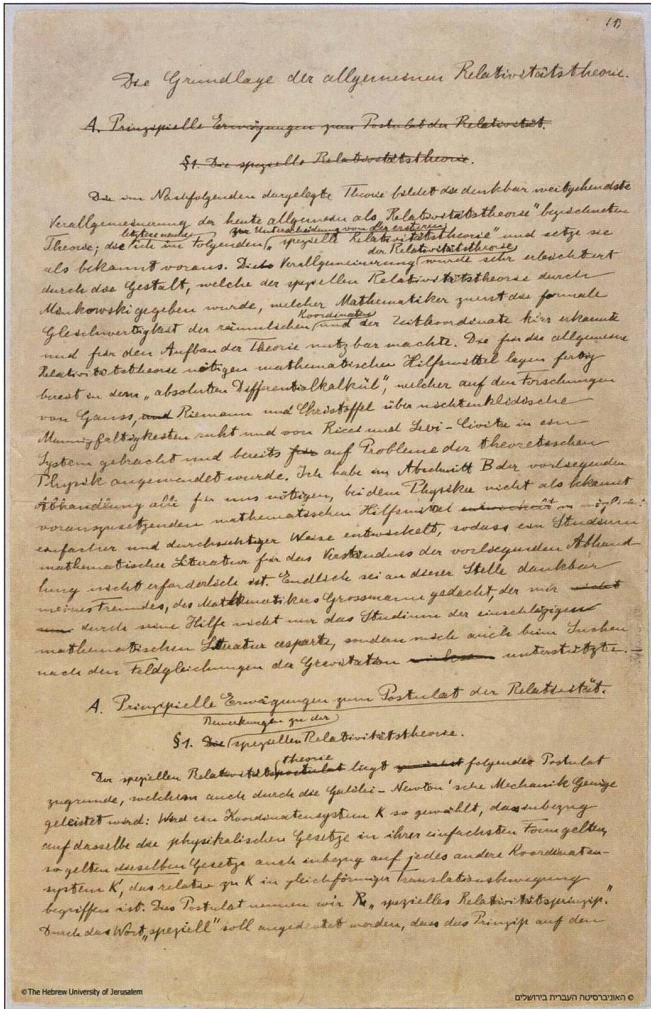 Die Grundlage der allgemeinen Relativitätstheorie.
A. Prinzipielle Erwägungen zum Postulat der Relativität.
§1. Die spezielle Relativitätstheorie.
Die im Nachfolgenden dargelegte Theorie bildet die denkbar weitgehendste
Verallgemeinerung der heute allgemein als „Relativitätstheorie" bezeichneten
letztere nenne zur Unterscheidung von der ersteren
Theorie; die ich im Folgenden „spezielle Relativitätstheorie" und setze sie
der Relativitätstheorie
als bekannt voraus. Die Verallgemeinerung wurde sehr erleichtert
durch die Gestalt, welche der speziellen Relativitätstheorie durch
Minkowski gegeben wurde, welcher Mathematiker zuerst die formale
Koordinaten
Gleichwertigkeit der räumlichen und der Zeitkoordinate klar erkannte
und für den Aufbau der Theorie nutzbar machte. Die für die allgemeine
Relativitätstheorie nötigen mathematischen Hilfsmittel lagen fertig
bereit in dem „absoluten Differentialkalkül", welcher auf den Forschungen
von Gauss, und Riemann und Christoffel über nichteuklidische
Mannigfaltigkeiten ruht und von Ricci und Levi-Civita in ein
System gebracht und bereits für auf Probleme der theoretischen
Physik angewendet wurde. Ich habe im Abschnitt B der vorliegenden
Abhandlung alle für uns nötigen, bei dem Physiker nicht als bekannt
vorauszusetzenden mathematischen Hilfsmittel in möglichst
einfacher und durchsichtiger Weise entwickelt, sodass ein Studium
mathematischer Literatur für das Verständnis der vorliegenden Abhand-
lung nicht erforderlich ist. Endlich sei an dieser Stelle dankbar
meines Freundes, des Mathematikers Grossmann gedacht, der mir nicht
durch seine Hilfe nicht nur das Studium der einschlägigen
mathematischen Literatur ersparte, sondern mich auch beim Suchen
nach den Feldgleichungen der Gravitation unterstützte.—
A. Prinzipielle Erwägungen zum Postulat der Relativität.
Bemerkungen zu der
§1. Die speziellen Relativitätstheorie.
theorie
Der speziellen Relativitätspostulat liegt folgendes Postulat
zugrunde, welchem auch durch die Galilei-Newton'sche Mechanik Genüge
geleistet wird: Wird ein Koordinatensystem K so gewählt, dass inbezug
auf dasselbe die physikalischen Gesetze in ihrer einfachsten Form gelten,
so gelten dieselben Gesetze auch inbezug auf jedes andere Koordinaten-
system K', das relativ zu K in gleichförmiger Translationsbewegung
begriffen ist. Dies Postulat nennen wir „spezielles Relativitätsprinzip."
Durch das Wort „speziell" soll angedeutet werden, dass das Prinzip auf den
©The Hebrew University of Jerusalem
© האוניברסיטה העברית בירושלים